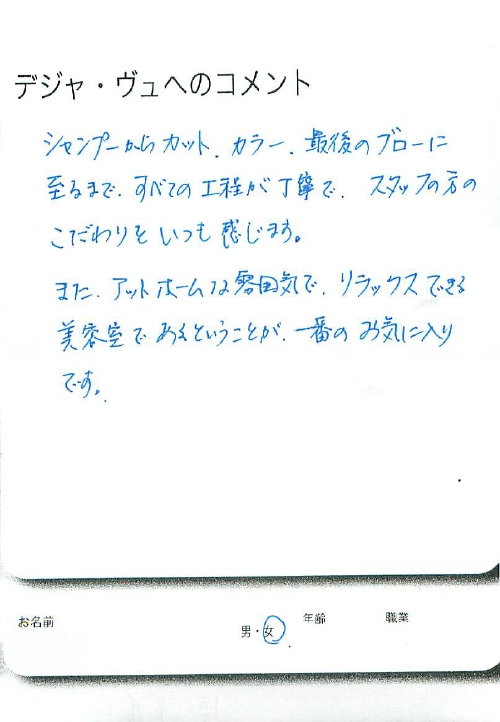 デジャ・ヴュへのコメント
シャンプーからカット、カラー、最後のブローに
至るまで、すべての工程が丁寧で、スタッフの方の
こだわりをいつも感じます。
また、アットホームな雰囲気で、リラックスできる
美容室であるということが、一番のお気に入り
です。
お名前 男・女 年齢 職業